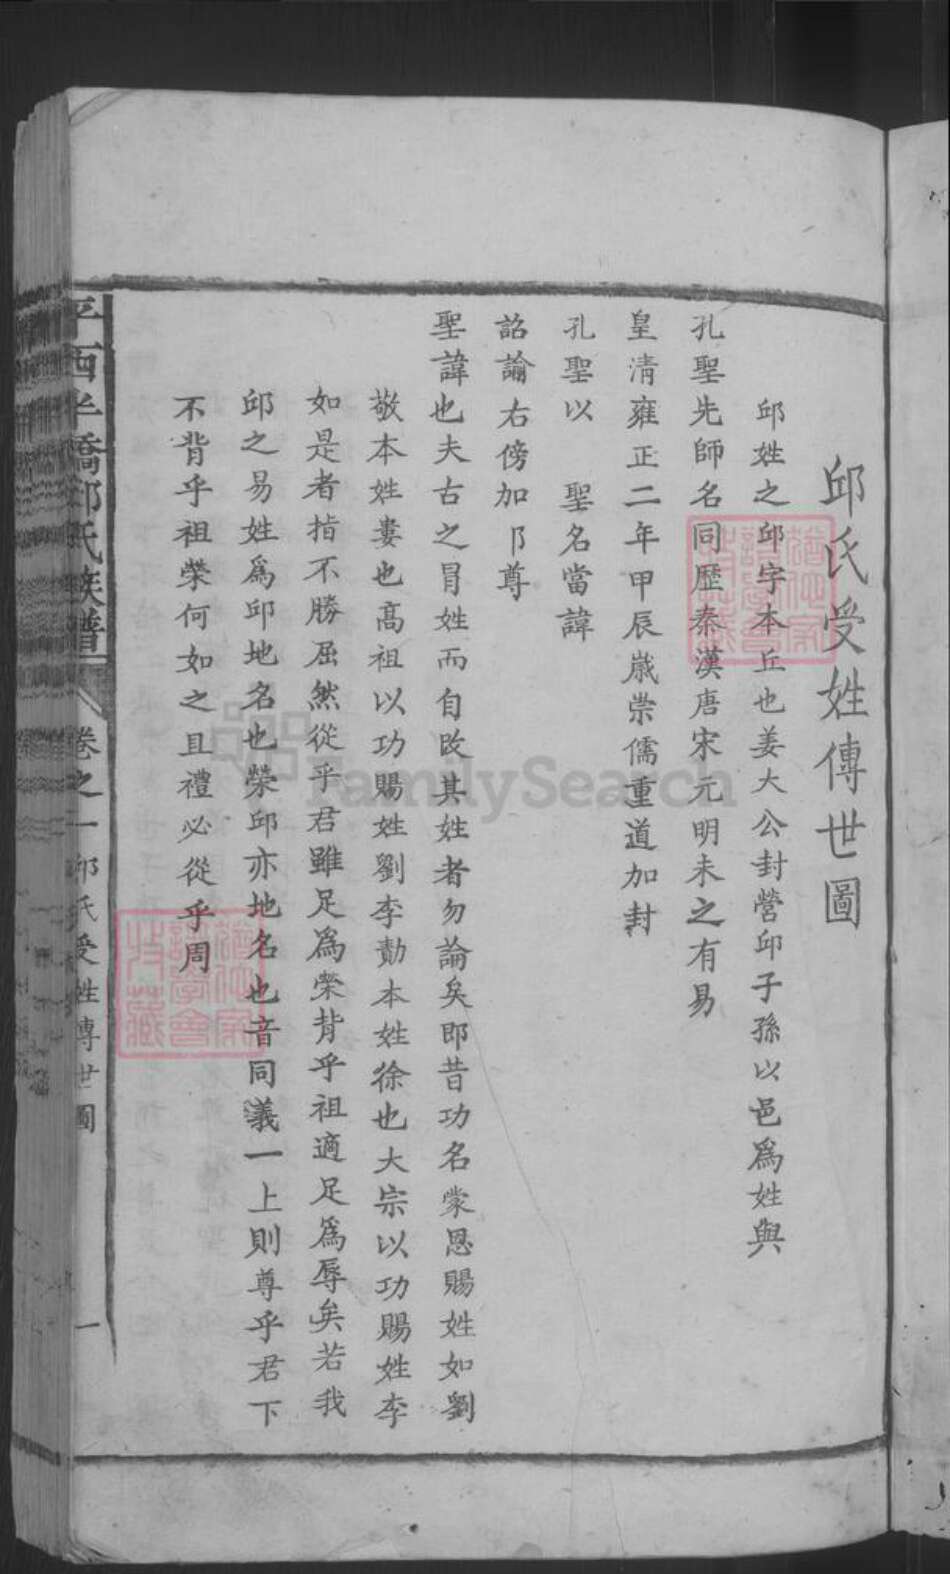 邱氏受姓傳世圖
邱姓之邱字本丘也姜大公封營邱子孫以邑爲姓與
孔聖先師名同歷秦漢唐宋元明未之有易
皇清雍正二年甲辰嵗崇儒重道加封
孔聖以 聖名當諱
詔諭右傍加阝尊
聖諱也夫古之冒姓而自改其姓者勿論矣即昔功名蒙恩賜姓如劉
敬本姓婁也髙祖以功賜姓劉李勣本姓徐也大宗以功賜姓李
如是者指不勝屈然從乎君雖足爲榮背乎祖適足爲辱矣若我
邱之易姓爲邱地名也榮邱亦地名也音同義一上則尊乎君下
不背乎祖榮何如之且禮必從乎周
平西半橋邱氏族譜
卷之一 邱氏受姓傳世圖
一
FamilySearch